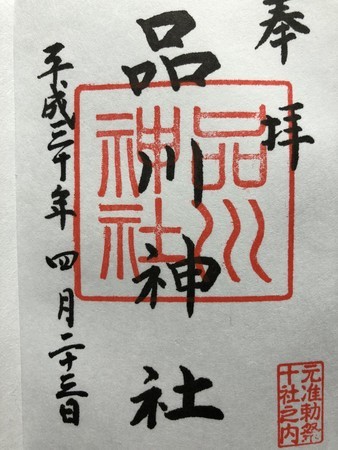 奉拝
品川神社
品川神社
平成三十年四月二十三日
元准勅祭
十社之内